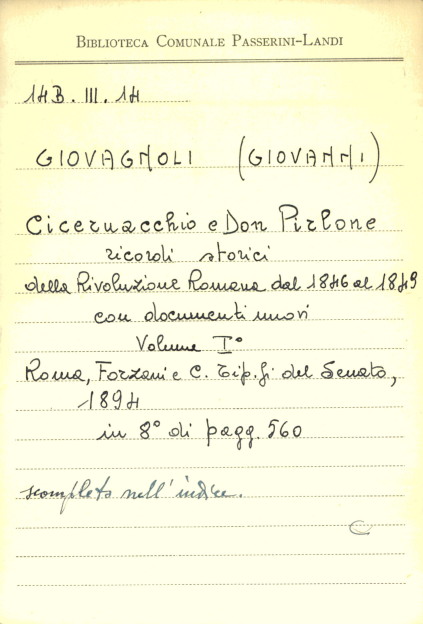 BIBLIOTECA COMUNALE PASSERINI-LANDI
14B. III. 14
GIOVAGNOLI (GIOVANNI)
Ciceruacchio e Don Pirlone
ricordi storici
della Rivoluzione Romana dal 1846 al 1849
con documenti nuovi
Volume I°
Roma, Forzani e C. Tip.fi del Senato,
1894
in 8° di pagg. 560
scompleto nell'indice.
C